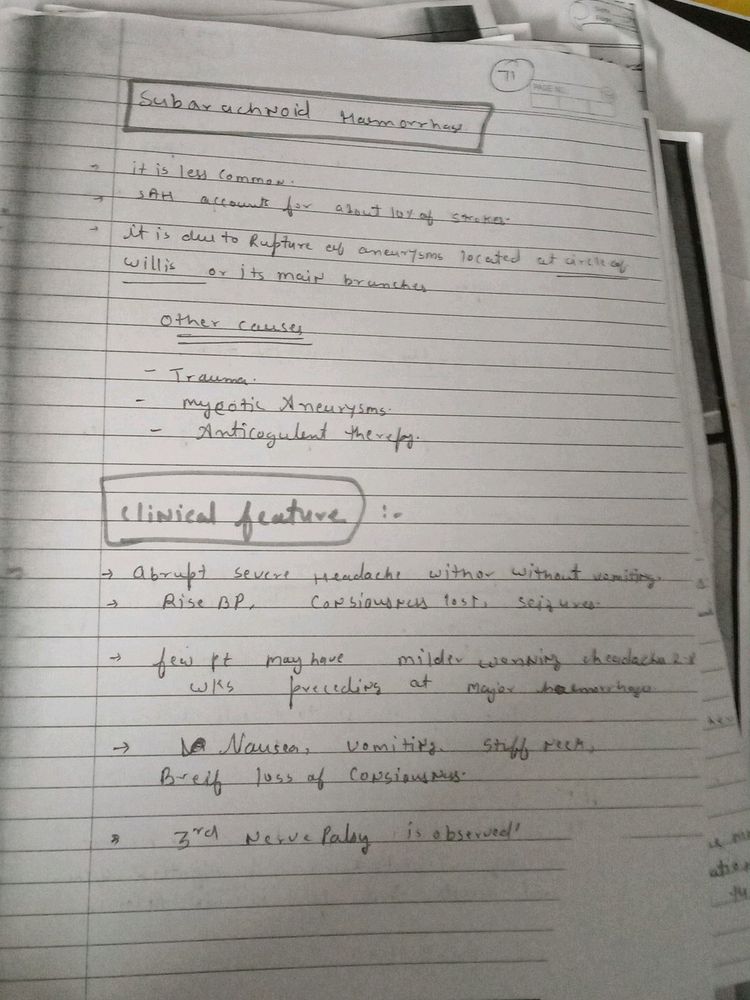 71
PAGE NO.
Subarachnoid Haemorrhage
→ it is less common.
→ SAH accounts for about 10% of strokes.
→ it is due to Rupture of aneurysms located at circle of
willis or its main brunches
Other causes
- Trauma.
- mycotic Aneurysms.
- Anticogulent therepy.
Clinical feature :-
→ Abrupt severe Headache with or without vomiting.
→ Rise BP, Consiousness lost, seizures.
→ few pt may have milder warning headache 2-8
wks preceding at major haemorrhage
→ Nausea, vomiting. stiff neck,
Breif loss of Consiousness.
→ 3rd Nerve Palsy is observed